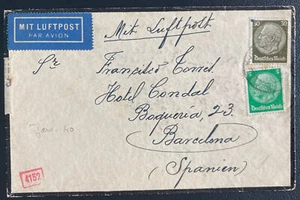 MIT LUFTPOST
PAR AVION
Mit Luftpost
Sr
Francisco Torred
Hotel Condal
Boqueria, 23
Barcelona
(Spanien)
Deutsches Reich
Deutsches Reich
4152